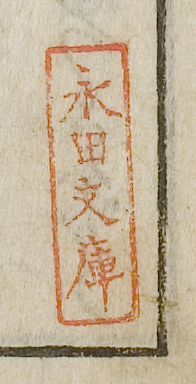 永田文庫